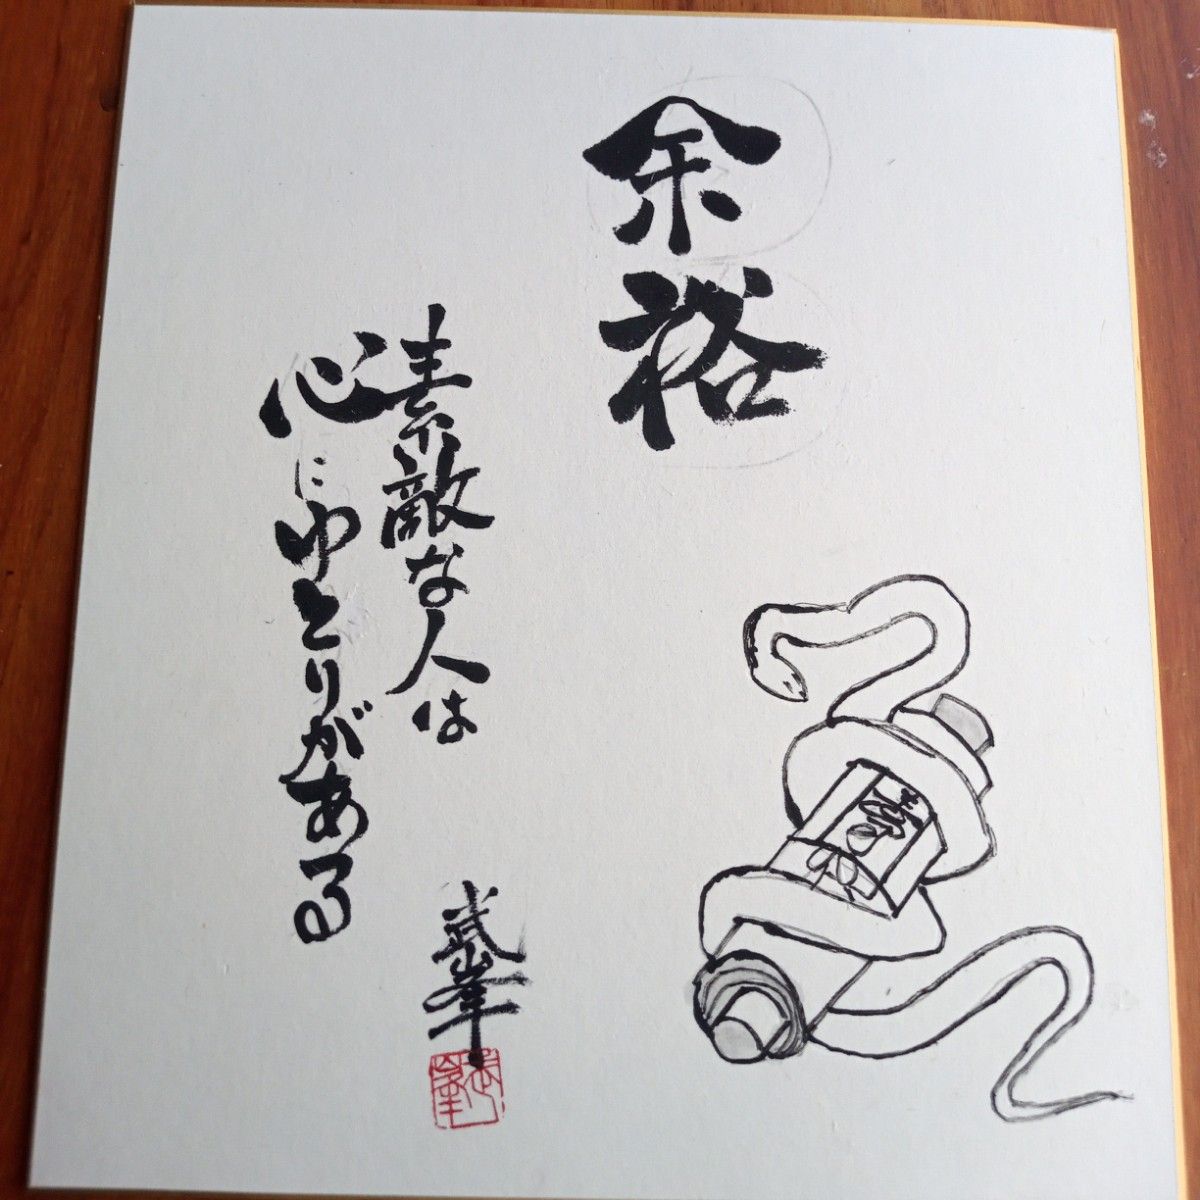 余裕
素敵な人は
心にゆとりがある
武峯
寿